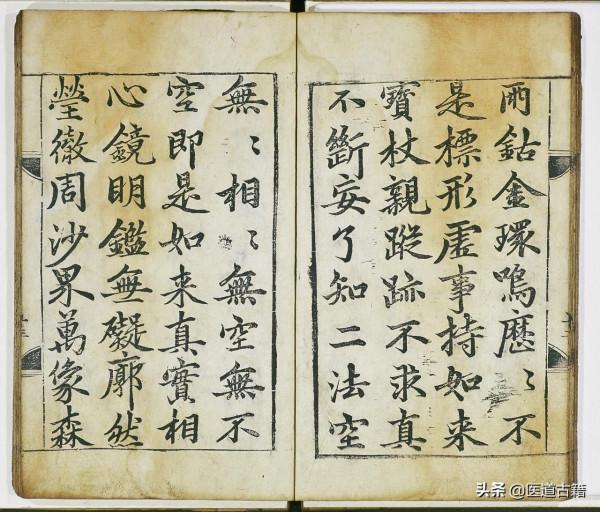 兩鈷金環鳴歷〻不
是標形虛事持如来
寶杖親蹤跡不求真
不斷妄了知二法空
無〻相〻無空無不
空即是如来真實相
心鏡明鑑無礙廓然
瑩徹周沙界萬像森
头条 @医道古籍